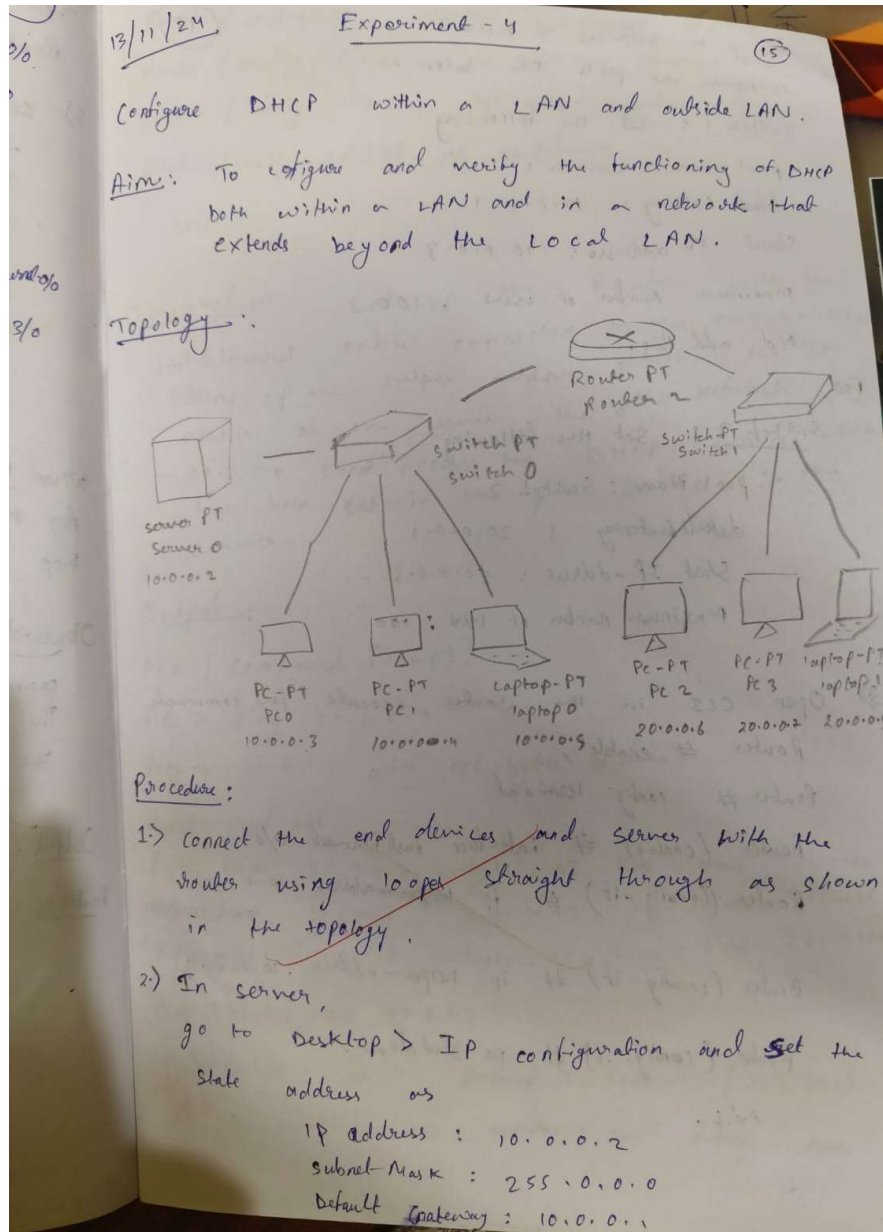 0/0
13/11/24
Experiment - 4
15
Configure DHCP within a LAN and outside LAN.
Aim: To cofigure and verify the functioning of DHCP
both within a LAN and in a network that
extends beyond the Local LAN.
3/0
Topology :
Router PT
Router 2
Switch PT
Switch 0
Switch-PT
Switch 1
server PT
Server 0
10.0.0.2
PC-PT
PC0
10.0.0.3
PC-PT
PC1
10.0.0.4
Laptop-PT
laptop 0
10.0.0.5
PC-PT
PC 2
20.0.0.6
PC-PT
PC 3
20.0.0.7
laptop-PT
laptop 1
20.0.0.
Procedure :
1.) connect the end devices and server with the
router using copper straight through as shown
in the topology.
2.) In server,
go to Desktop > IP configuration and set the
state address as
IP address : 10.0.0.2
subnet-Mask : 255.0.0.0
Default Gateway : 10.0.0.1